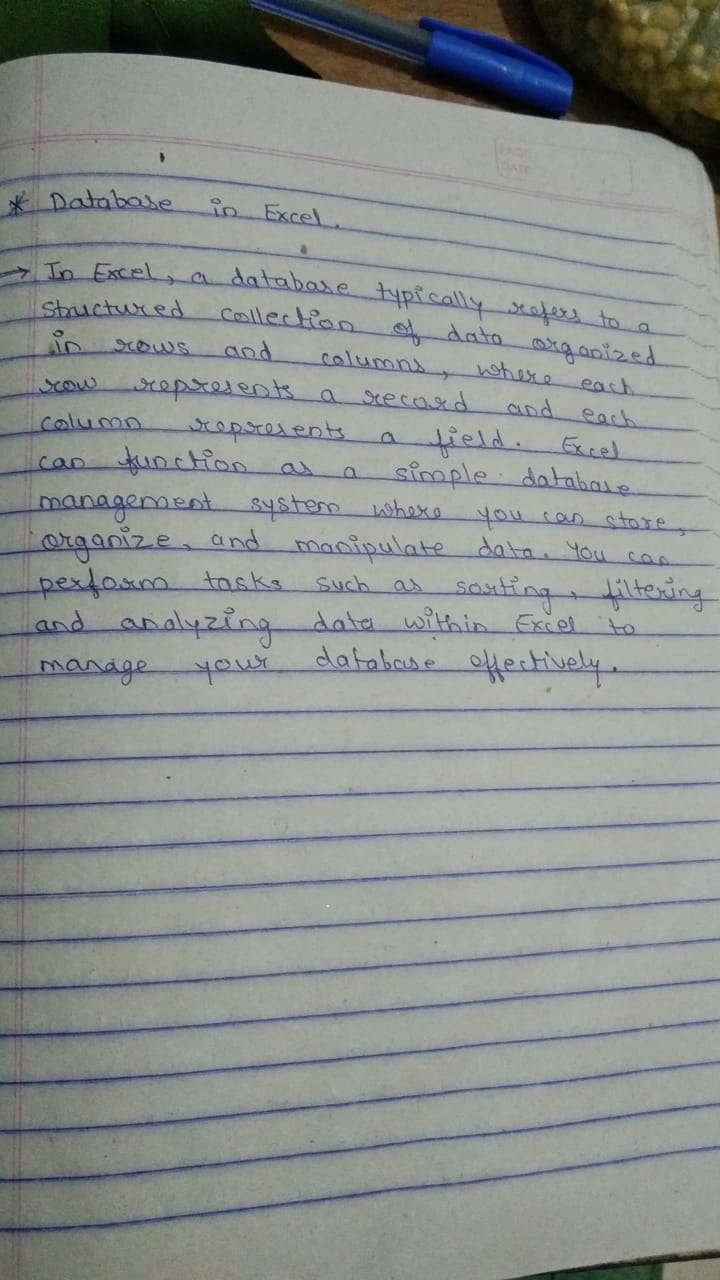 PAGE
DATE
* Database in Excel.
→ In Excel, a database typically refers to a
structured collection of data organized
in rows and columns, where each
row represents a record and each
column represents a field. Excel
can function as a simple database
management system where you can store,
organize, and manipulate data. You can
perform tasks such as sorting, filtering
and analyzing data within Excel to
manage your database effectively.